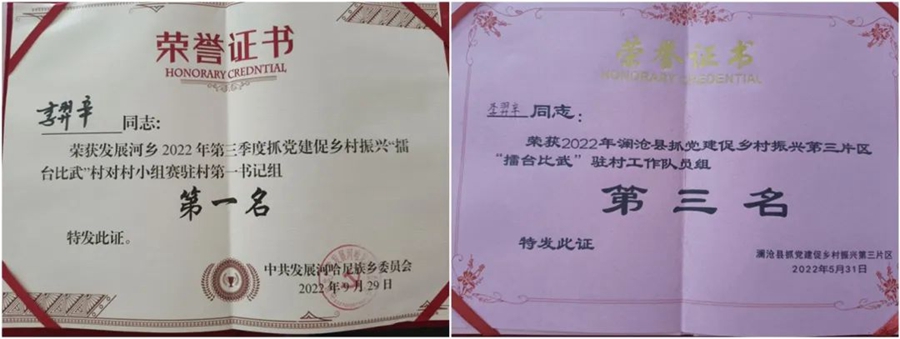 荣誉证书
HONORARY CREDNTIAL
李羿辛 同志:
荣获发展河乡2022年第三季度抓党建促乡村振兴“擂
台比武”村对村小组赛驻村第一书记组
第一名
特发此证。
中共发展河哈尼族乡委员会
2022年9月29日
荣誉证书
HONORARY CREDENTIAL
李羿辛 同志:
荣获2022年澜沧县抓党建促乡村振兴第三片区
“擂台比武”驻村工作队员组
第三名
特发此证
澜沧县抓党建促乡村振兴第三片区
2022年5月31日